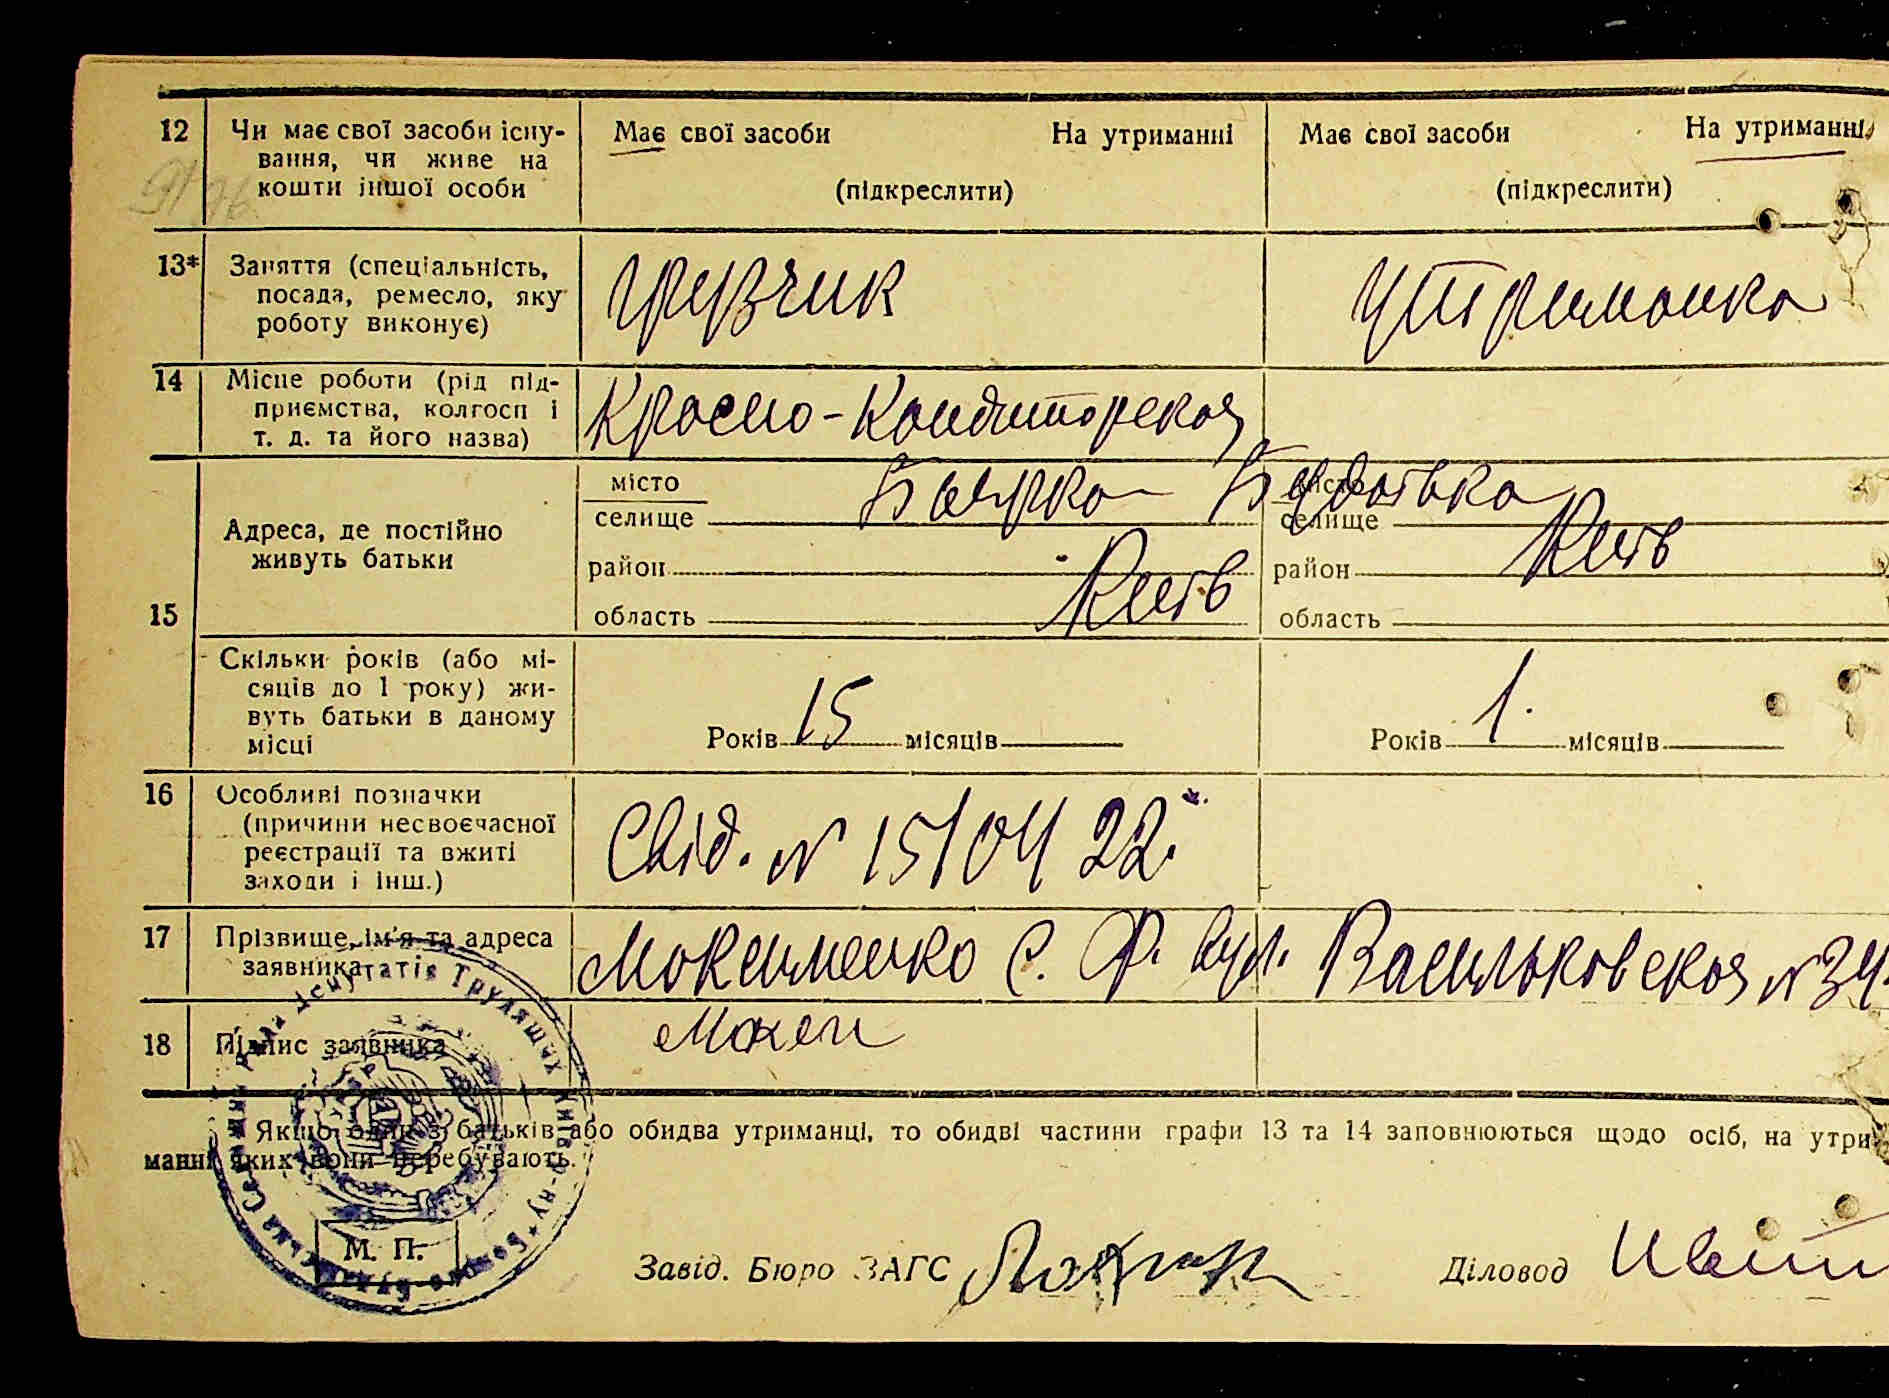 12 Чи має свої засоби існу- Має свої засоби На утриманні Має свої засоби На утриманні
вання, чи живе на
кошти іншої особи (підкреслити) (підкреслити)
13* Заняття (спеціальність,
посада, ремесло, яку Грузчик Утриманка
роботу виконує)
14 Місце роботи (рід під-
приємства, колгосп і Красно-Кондиторская
т. д. та його назва)
15 Адреса, де постійно
живуть батьки
місто Боярка-Будаївка місто
селище селище
район район Київ
область Київ область
Скільки років (або мі-
сяців до 1 року) жи-
вуть батьки в даному
місці Років 15 місяців Років 1. місяців
16 Особливі позначки
(причини несвоєчасної
реєстрації та вжиті Свід. N 15104 22.
заходи і інш.)
17 Прізвище, ім'я та адреса
заявника Максименко С. Ф. вул. Васильковская N 34
18 Підпис заявника Макси
Якщо один з батьків або обидва утриманці, то обидві частини графи 13 та 14 заповнюються щодо осіб, на утри
манні яких вони перебувають.
Депутатів Трудящих Київ р-ну
М. П.
Завід. Бюро ЗАГС Діловод